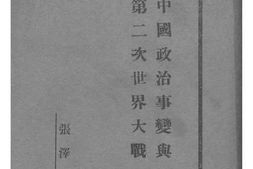 中國政治事變與
第二次世界大戰
張澤